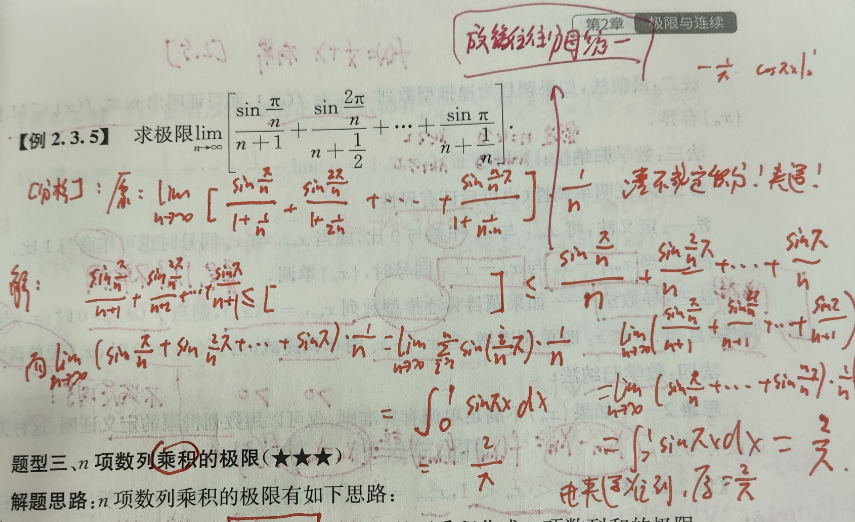 第2章 极限与连续
放缩往往分母统一
【例 2.3.5】 求极限lim n→∞ [sin(π/n)/(n+1) + sin(2π/n)/(n+1/2) + ⋯ + sin π/(n+1/n)].
-1/π cosπx|₀¹
[分析]：原：lim n→∞ [sin(π/n)/(1+1/n) + sin(2π/n)/(1+1/2n) + ⋯ + sin(n/n π)/(1+1/n·n)] 1/n
凑不到定积分！夹逼！
解：sin(π/n)/(n+1) + sin(2π/n)/(n+1) + ⋯ + sinπ/(n+1) ≤ [ ] ≤ sin(π/n)/n + sin(2/n π)/n + ⋯ + sinπ/n
而 lim n→∞ (sin π/n + sin 2/n π + ⋯ + sinπ)·1/n = lim n→∞ Σ i=1 n sin(i/n π)·1/n
= ∫₀¹ sinπx dx
= 2/π
lim n→∞ (sin(π/n)/(n+1) + sin(2π/n)/(n+1) + ⋯ + sinπ/(n+1))
= lim n→∞ (sin π/n + ⋯ + sin n/n π)·1/n
= ∫₀¹ sinπx dx = 2/π.
由夹逼准则，原=2/π
题型三、n 项数列乘积的极限(★★★)
解题思路：n 项数列乘积的极限有如下思路：